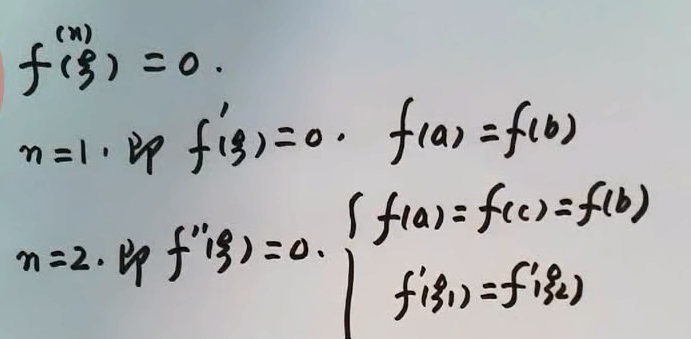 f⁽ⁿ⁾(ξ) = 0.
n=1. 即 f'(ξ)=0. f(a)=f(b)
n=2. 即 f''(ξ)=0. { f(a)=f(c)=f(b)
f'(ξ₁)=f'(ξ₂)